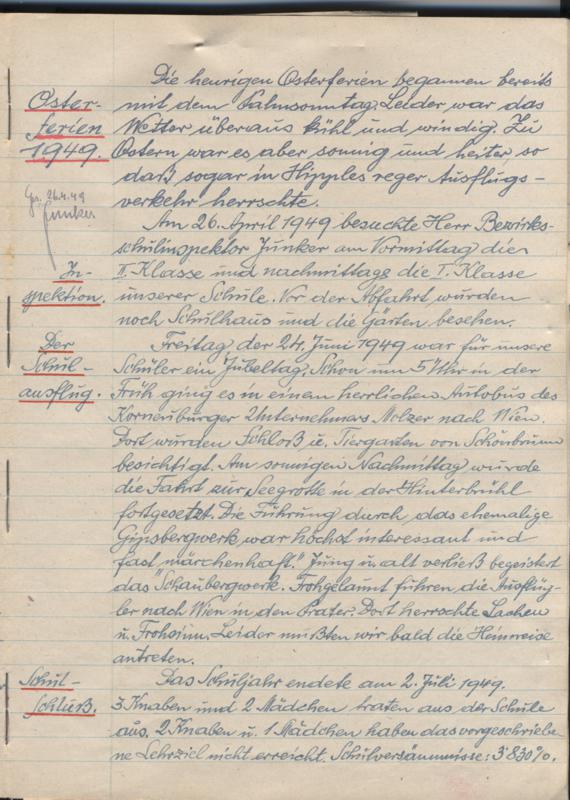 Oster-
ferien
1949.
Die heurigen Osterferien begannen bereits
mit dem Palmsonntag. Leider war das
Wetter überaus kühl und windig. Zu
Ostern war es aber sonnig und heiter, so
daß sogar in Hipples reger Ausflugs-
verkehr herrschte.
Ges. 26.4.49
Junker
In-
spektion.
Am 26. April 1949 besuchte Herr Bezirks-
schulinspektor Junker am Vormittag die
II. Klasse und nachmittags die I. Klasse
unserer Schule. Vor der Abfahrt wurden
noch Schulhaus und die Gärten besehen.
Der
Schul-
ausflug.
Freitag der 24. Juni 1949 war für unsere
Schüler ein Jubeltag. Schon um 5 Uhr in der
Früh ging es in einem herrlichen Autobus des
Korneuburger Unternehmers Melzer nach Wien.
Dort wurden Schloß u. Tiergarten von Schönbrunn
besichtigt. Am sonnigen Nachmittag wurde
die Fahrt zur Seegrotte in der Hinterbrühl
fortgesetzt. Die Führung durch das ehemalige
Gipsbergwerk war höchst interessant und
fast "märchenhaft." Jung u. alt verließ begeistert
das "Schaubergwerk. Frohgelaunt fuhren die Ausflüg-
ler nach Wien in den Prater. Dort herrschte Lachen
u. Frohsinn. Leider mußten wir bald die Heimreise
antreten.
Schul-
schluß.
Das Schuljahr endete am 2. Juli 1949.
3 Knaben und 2 Mädchen traten aus der Schule
aus. 2 Knaben u. 1 Mädchen haben das vorgeschriebe-
ne Lehrziel nicht erreicht. Schulversäumnisse: 3'830%.